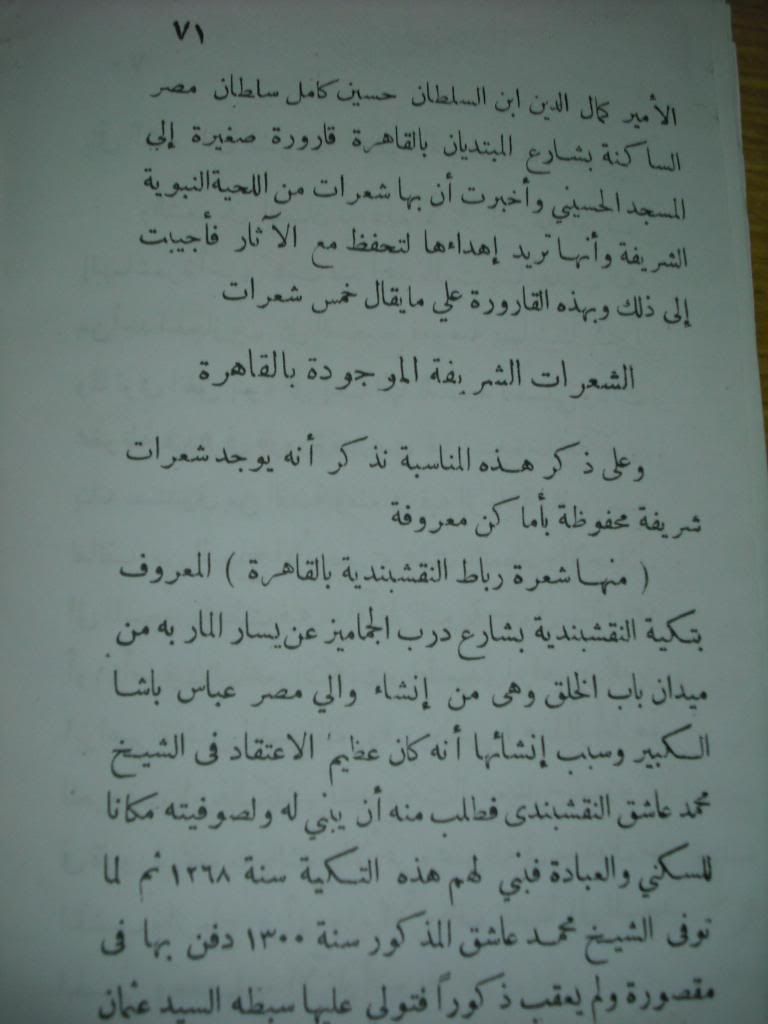 ٧١
الأمير كمال الدين ابن السلطان حسين كامل سلطان مصر
الساكنة بشارع المبتديان بالقاهرة قارورة صغيرة إلي
المسجد الحسيني وأخبرت أن بها شعرات من اللحية النبوية
الشريفة وأنها تريد إهداءها لتحفظ مع الآثار فأجيبت
إلى ذلك وبهذه القارورة علي مايقال خمس شعرات
الشعرات الشريفة الموجودة بالقاهرة
وعلى ذكر هذه المناسبة نذكر أنه يوجد شعرات
شريفة محفوظة بأماكن معروفة
( منها شعرة رباط النقشبندية بالقاهرة ) المعروف
بتكية النقشبندية بشارع درب الجماميز عن يسار المار به من
ميدان باب الخلق وهى من إنشاء والي مصر عباس باشا
الكبير وسبب إنشائها أنه كان عظيم الاعتقاد فى الشيخ
محمد عاشق النقشبندى فطلب منه أن يبني له ولصوفيته مكانا
للسكني والعبادة فبني لهم هذه التكية سنة ١٢٦٨ ثم لما
توفى الشيخ محمد عاشق المذكور سنة ١٣٠٠ دفن بها فى
مقصورة ولم يعقب ذكوراً فتولى عليها سبطه السيد عثمان